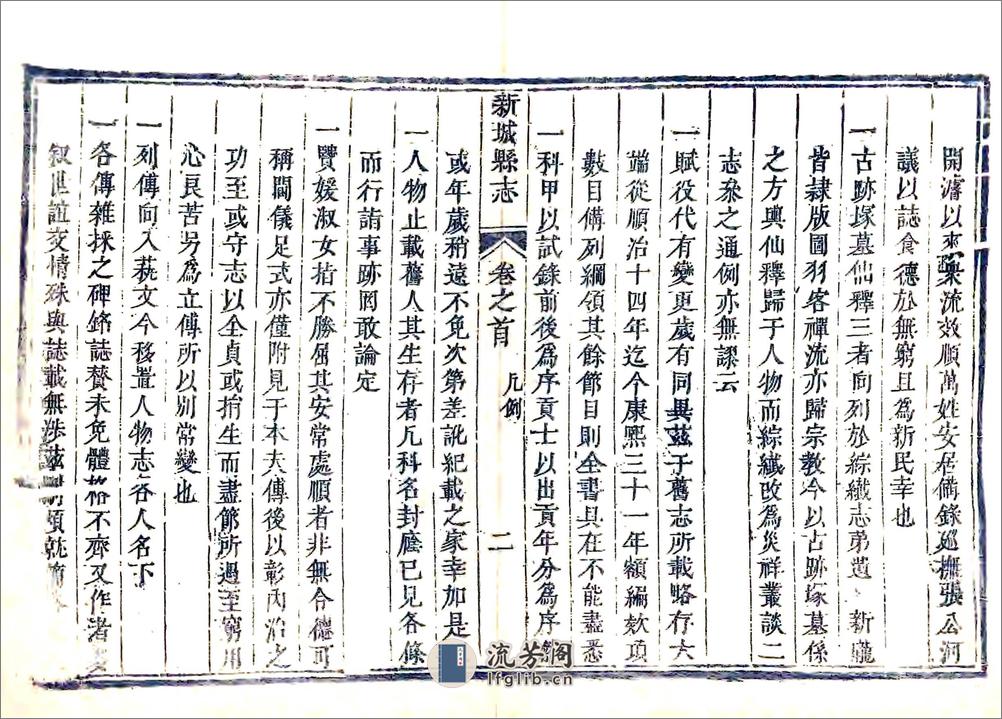 開濬以來梁流效順萬姓安居備錄廵撫張公河
議以誌食德於無窮且為新民幸也
一古跡塚墓仙釋三者向列於綜纎志弟遺 新壠
皆隷版圖羽客禪流亦歸宗教今以古跡塚墓係
之方輿仙釋歸于人物而綜纎改為災祥叢談二
志叅之通例亦無謬云
一賦役代有變更歲有同異茲于舊志所載略存大
端從順治十四年迄今康熙三十一年額編欵項
數目備列綱領其餘節目則全書具在不能盡悉
一科甲以試錄前後為序貢士以出貢年分為序
新城縣志 卷之首 凡例 二
或年歲稍遠不免次第差訛紀載之家幸加是
一人物止載舊人其生存者凡科名封廕已見各條
而行誼事跡罔敢論定
一賢媛淑女指不勝屈其安常處順者非無令德可
稱閫儀足式亦僅附見于本夫傳後以彰內治之
功至或守志以全貞或捐生而盡節所遇至窮用
心良苦另為立傳所以別常變也
一列傳向入藝文今移置人物志各人名下
一各傳雜採之碑銘誌贊未免體格不齊又作者
叙世誼交情殊與誌載無涉茲
流芳閣
lfglib.cn